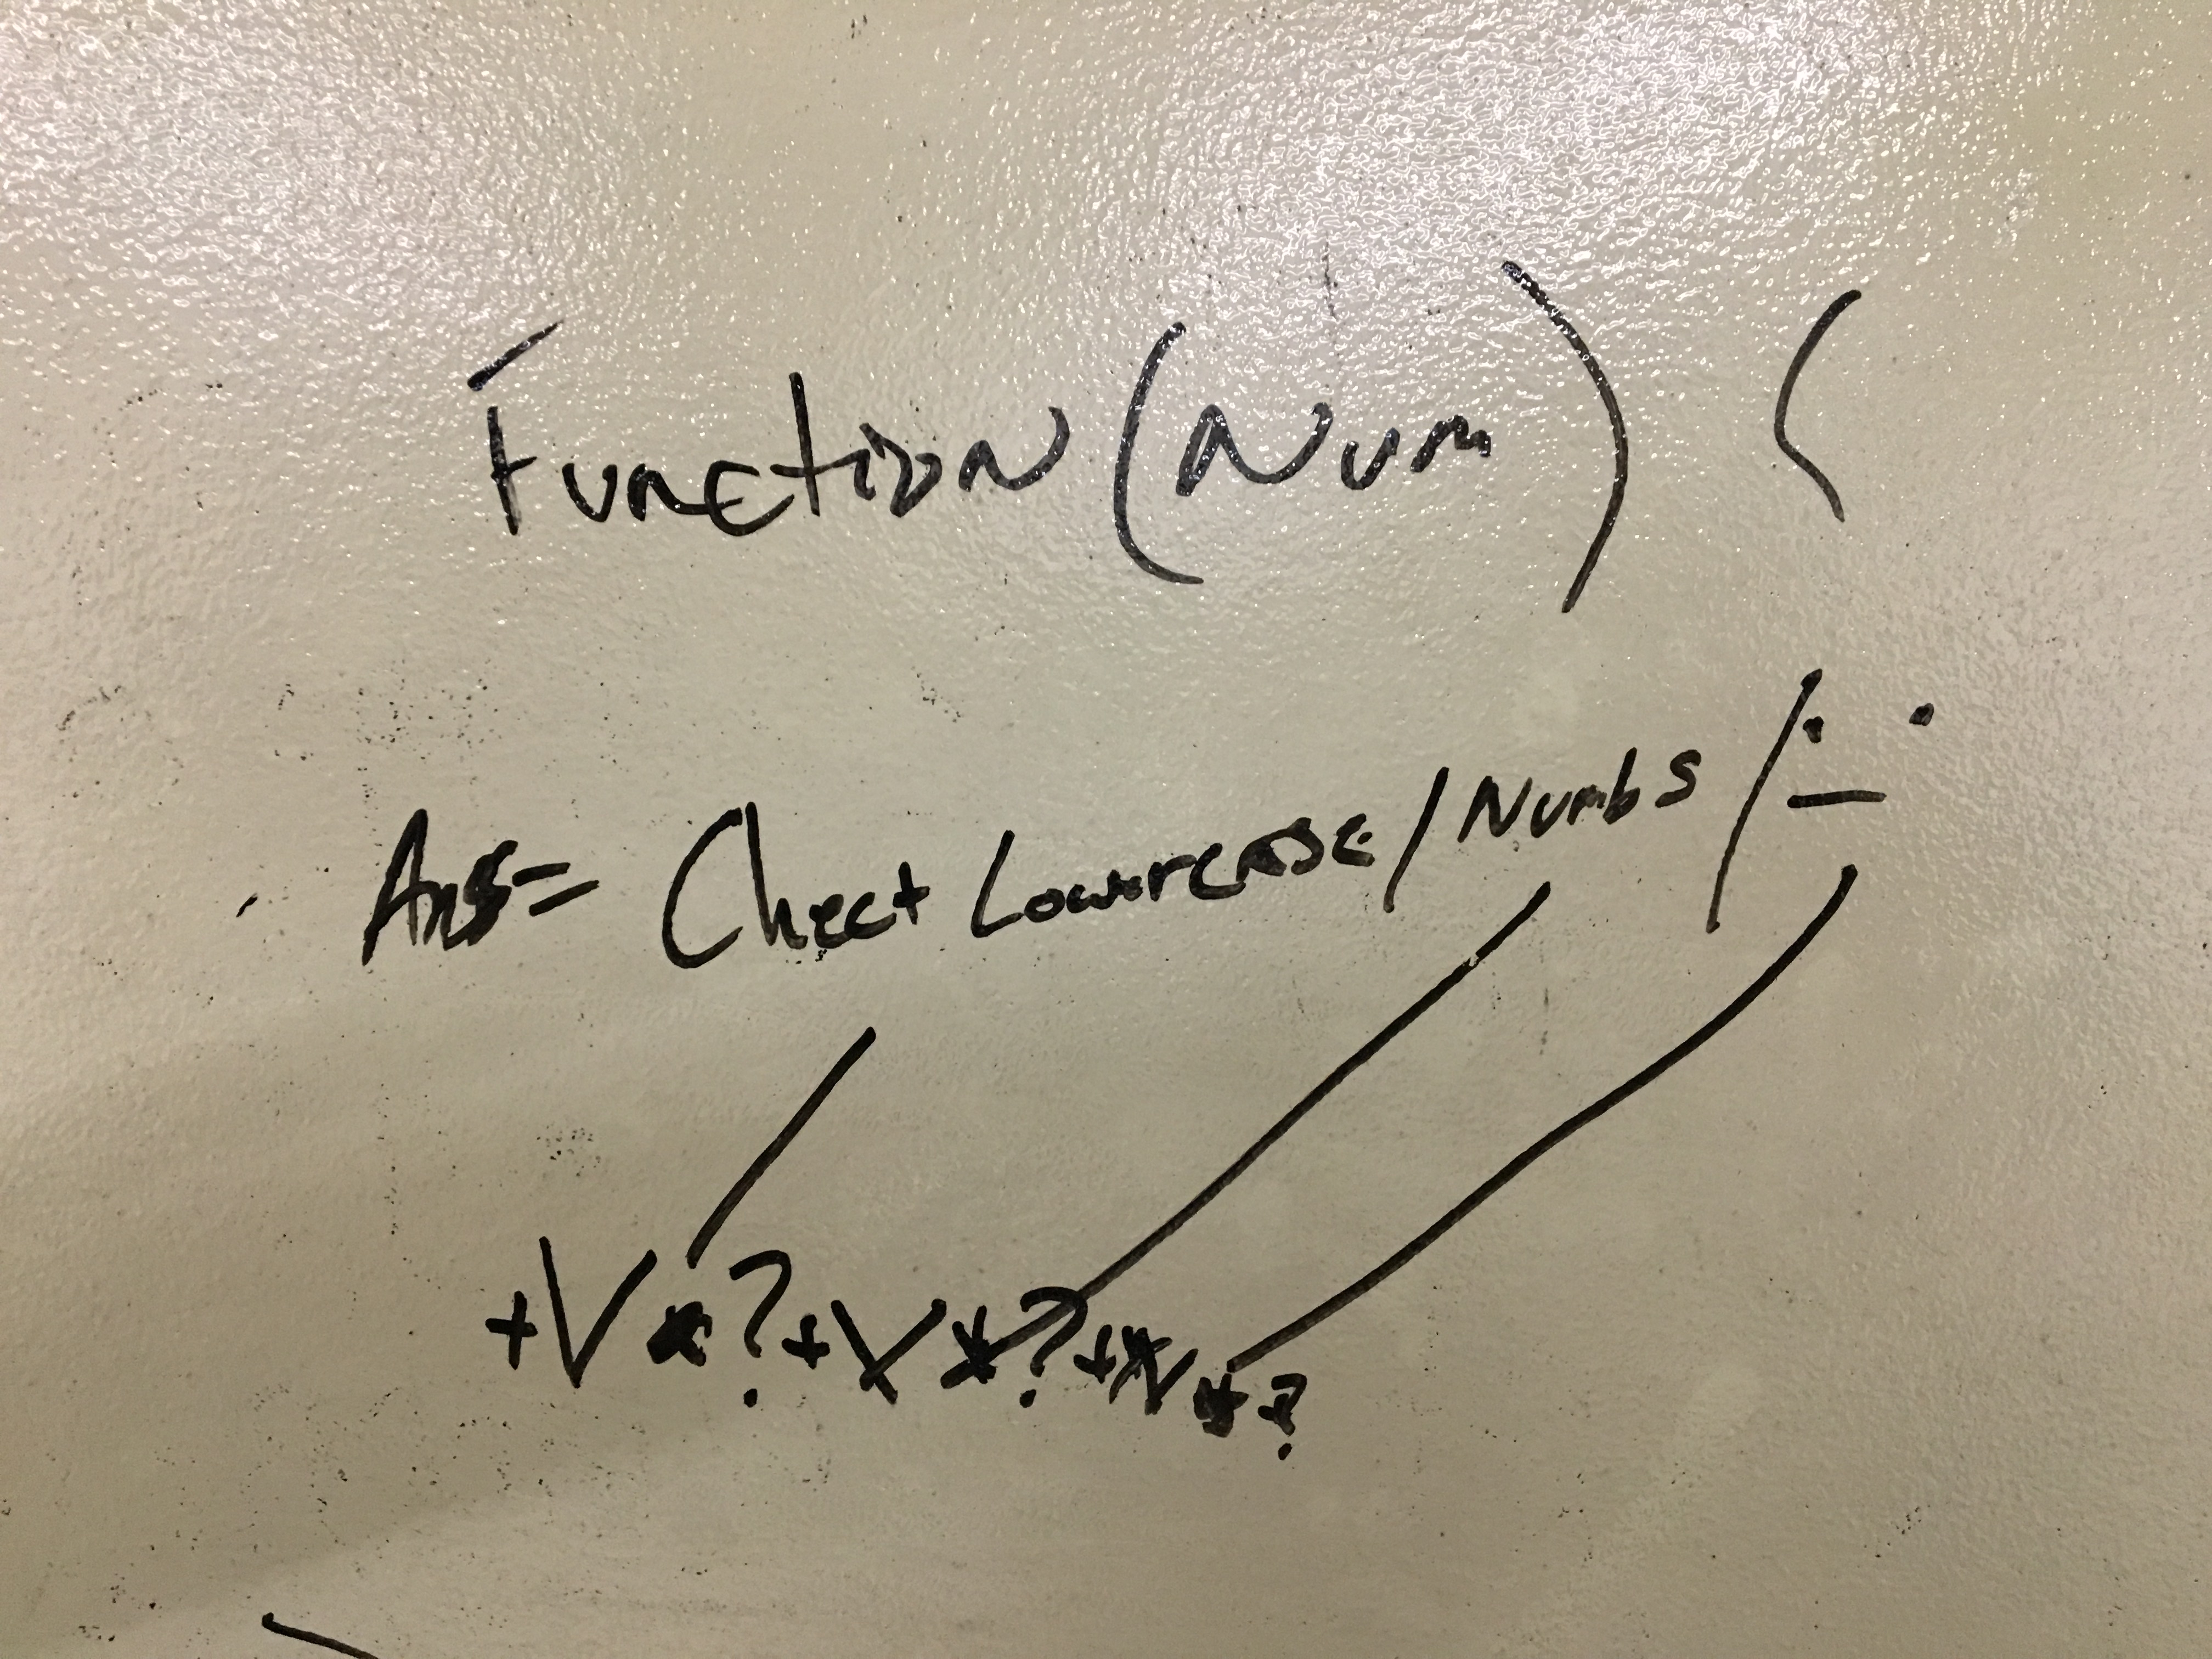 Function (Num) {
Ans= Check Lowercase / Numbs / :_.
+V*?+V*?+V*?